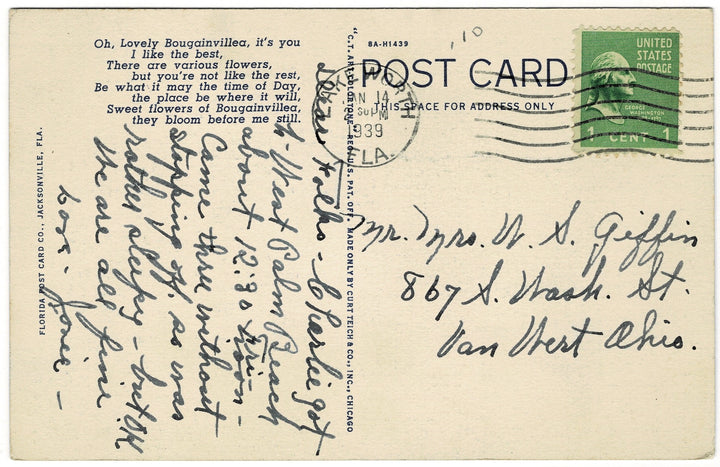 Oh, Lovely Bougainvillea, it's you
I like the best,
There are various flowers,
but you're not like the rest,
Be what it may the time of Day,
the place be where it will,
Sweet flowers of Bougainvillea,
they bloom before me still.
FLORIDA POST CARD CO., JACKSONVILLE, FLA.
Dear Folks - Charlie got
to West Palm Beach
about 12:30 Fri -
Came thru without
stopping so was
rather sleepy - but OK
We are all fine
Love -
"C.T. ART-COLORTONE" REG. U.S. PAT. OFF. MADE ONLY BY CURT TEICH & CO., INC., CHICAGO
8A-H1439
110
POST CARD
THIS SPACE FOR ADDRESS ONLY
LAKE WORTH
JAN 14
PM
1939
FLA.
UNITED
STATES
POSTAGE
GEORGE
WASHINGTON
1 CENT 1
Mr. Mrs. W. S. Giffin
867 S. Wash. St.
Van Wert Ohio.